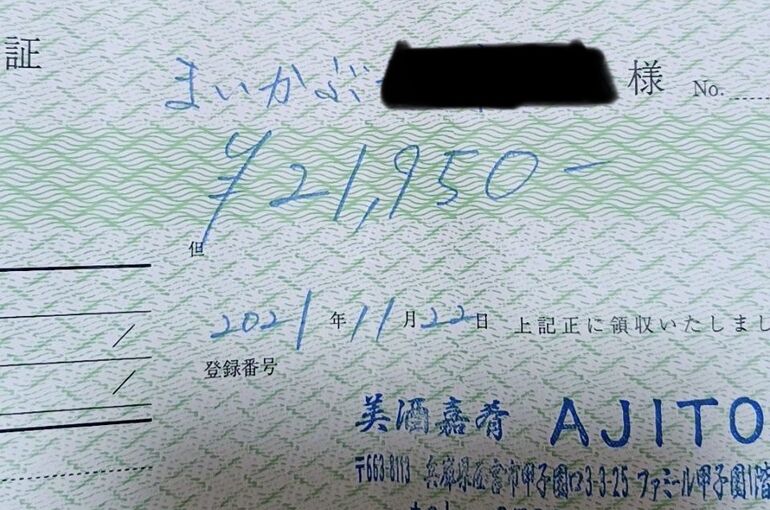 証
まいかぶ 様 No.
¥21,950-
但
2021年11月22日 上記正に領収いたしまし
登録番号
美酒嘉肴 AJITO
〒663-8113 兵庫県西宮市甲子園口3-3-25 ファミール甲子園1階